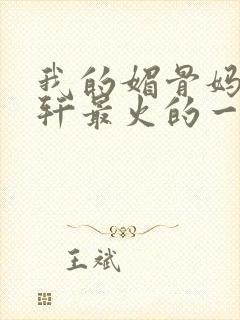 我的媚骨妈
轩最火的一
王斌